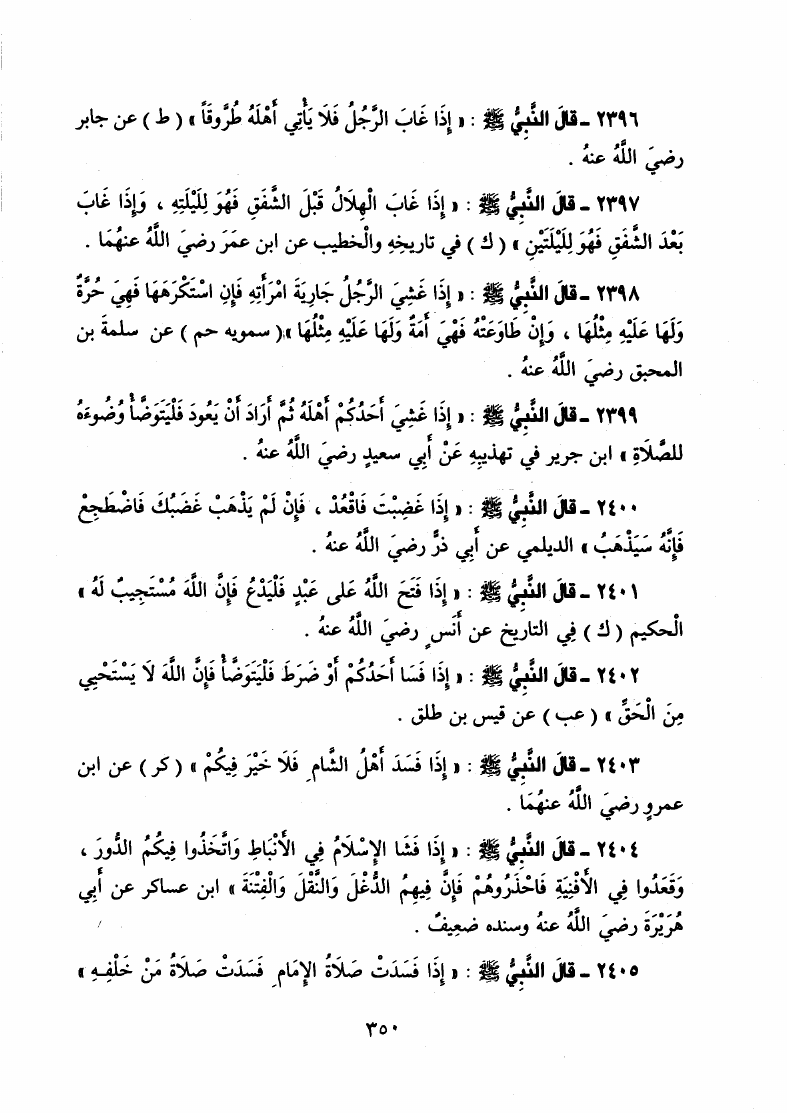 ٢٣٩٦ ـ قالَ النَّبِيُّ ﷺ : « إِذَا غَابَ الرَّجُلُ فَلَا يَأْتِي أَهْلَهُ طُرُوقَاً » ( ط ) عن جابر
رضيَ اللَّهُ عنهُ .
٢٣٩٧ ـ قالَ النَّبِيُّ ﷺ : « إِذَا غَابَ الْهِلَالُ قَبْلَ الشَّفَقِ فَهُوَ لِلَيْلَتِهِ ، وَإِذَا غَابَ
بَعْدَ الشَّفَقِ فَهُوَ لِلَيْلَتَيْنِ » ( ك ) في تاريخِهِ والْخطيب عن ابن عمَرَ رضيَ اللَّهُ عنهُمَا .
٢٣٩٨ ـ قالَ النَّبِيُّ ﷺ : « إِذَا غَشِيَ الرَّجُلُ جَارِيَةَ امْرَأَتِهِ فَإِنِ اسْتَكْرَهَهَا فَهِيَ حُرَّةٌ
وَلَهَا عَلَيْهِ مِثْلُهَا ، وَإِنْ طَاوَعَتْهُ فَهْيَ أَمَةٌ وَلَهَا عَلَيْهِ مِثْلُهَا »( سمويه حم ) عن سلمةَ بن
المحبق رضيَ اللَّهُ عنهُ .
٢٣٩٩ ـ قالَ النَّبِيُّ ﷺ : « إِذَا غَشِيَ أَحَدُكُمْ أَهْلَهُ ثُمَّ أَرَادَ أَنْ يَعُودَ فَلْيَتَوَضَّأْ وُضُوءَهُ
للصَّلَاةِ » ابن جرير في تهذيبِهِ عَنْ أَبِي سعيدٍ رضيَ اللَّهُ عنهُ .
٢٤٠٠ ـ قالَ النَّبِيُّ ﷺ : « إِذَا غَضِبْتَ فَاقْعُدْ ، فَإِنْ لَمْ يَذْهَبْ غَضَبُكَ فَاضْطَجِعْ
فَإِنَّهُ سَيَذْهَبُ » الديلمي عن أَبي ذرٍّ رضيَ اللَّهُ عنهُ .
٢٤٠١ ـ قالَ النَّبِيُّ ﷺ : « إِذَا فَتَحَ اللَّهُ على عَبْدٍ فَلْيَدْعُ فَإِنَّ اللَّهَ مُسْتَجِيبٌ لَهُ »
الْحكيم ( ك ) فِي التاريخ عن أَنَس ٍ رضيَ اللَّهُ عنهُ .
٢٤٠٢ ـ قالَ النَّبِيُّ ﷺ : « إِذَا فَسَا أَحَدُكُمْ أَوْ ضَرَطَ فَلْيَتَوَضَّأْ فَإِنَّ اللَّهَ لَا يَسْتَحْيِي
مِنَ الْحَقِّ » ( عب ) عن قيس بن طلق .
٢٤٠٣ ـ قالَ النَّبِيُّ ﷺ : « إِذَا فَسَدَ أَهْلُ الشَّامِ فَلَا خَيْرَ فِيكُمْ » ( كر ) عن ابن
عمرٍو رضيَ اللَّهُ عنهُمَا .
٢٤٠٤ ـ قالَ النَّبِيُّ ﷺ : « إِذَا فَشَا الإِسْلَامُ فِي الأَنْبَاطِ وَاتَّخَذُوا فِيكُمُ الدُّورَ ،
وَقَعَدُوا فِي الأَفْنِيَةِ فَاحْذَرُوهُمْ فَإِنَّ فِيهِمُ الدَّغَلَ وَالنَّغَلَ وَالْفِتْنَةَ » ابن عساكر عن أَبي
هُرَيْرَةَ رضيَ اللَّهُ عنهُ وسنده ضعيفٌ .
٢٤٠٥ ـ قالَ النَّبِيُّ ﷺ : « إِذَا فَسَدَتْ صَلَاةُ الإِمَامِ فَسَدَتْ صَلَاةُ مَنْ خَلْفِـهِ »
٣٥٠